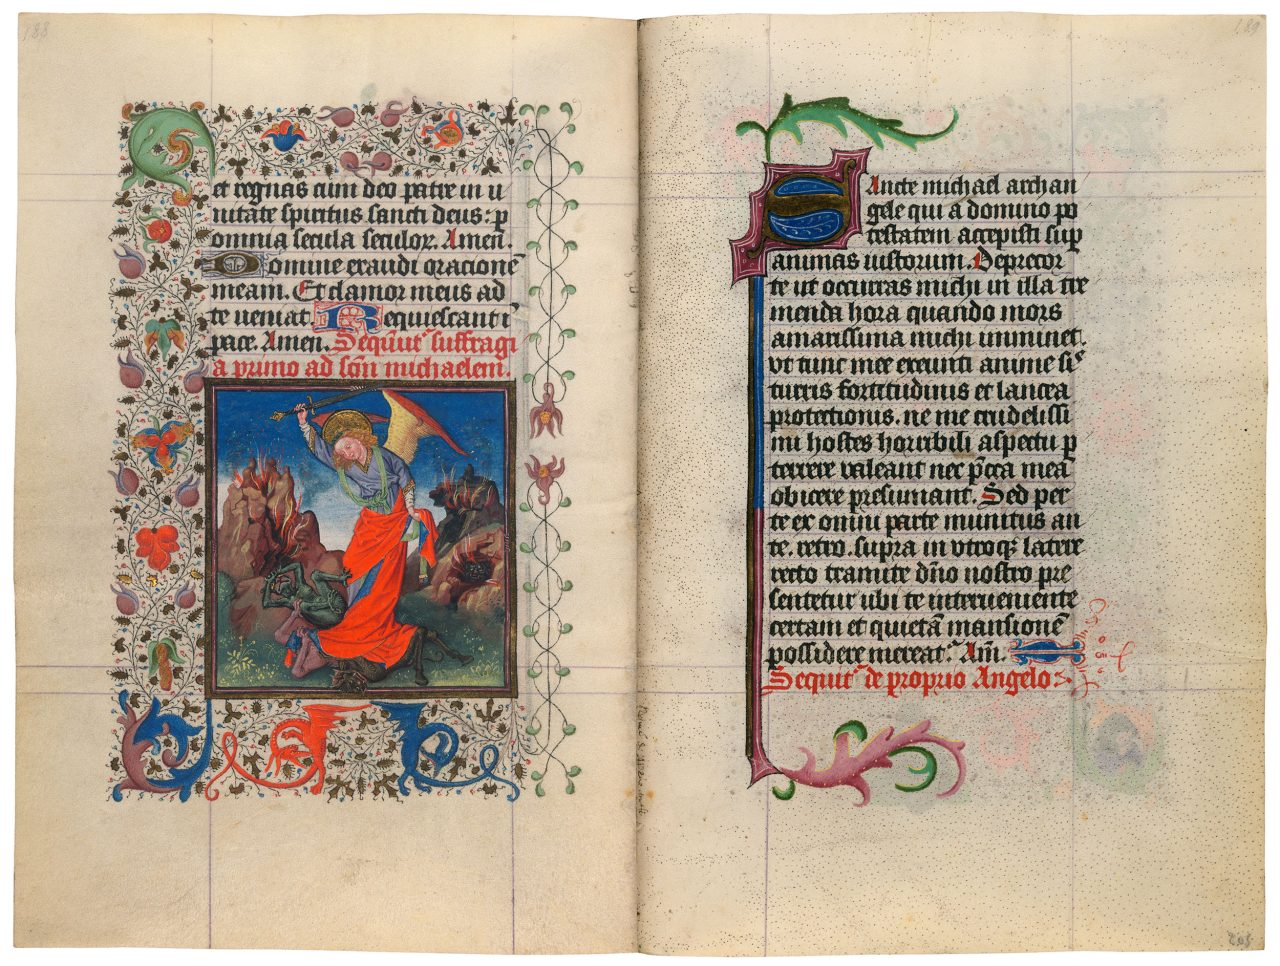 188
et regnas cum deo patre in u
nitate spiritus sancti deus: p
omnia secula seculoꝝ. Amen.
Domine exaudi oracionē
meam. Et clamor meus ad
te ueniat. Requiescant ī
pace. Amen. Sequūt' suffragi
a primo ad sc̄m michaelem.
189
Sancte michael archan
gele qui a domino po
testatem accepisti sup
animas iustorum. Deprecor
te ut occurras michi in illa tre
menda hora quando mors
amarissima michi imminet.
Vt tunc mee exeunti anime sc̄
turris fortitudinis et lancea
protectionis. ne me crudelissi
mi hostes horribili aspectu p
terrere valeant nec p̄cc̄a mea
obicere presumant. Sed per
te ex omni parte munitus an
te. retro. supra in vtroqꝫ latere
recto tramite dn̄o nostro pre
sentetur ubi te interueniente
certam et quietā mansionē
possidere mereat'. Am̄.
Sequit' de proprio Angelo